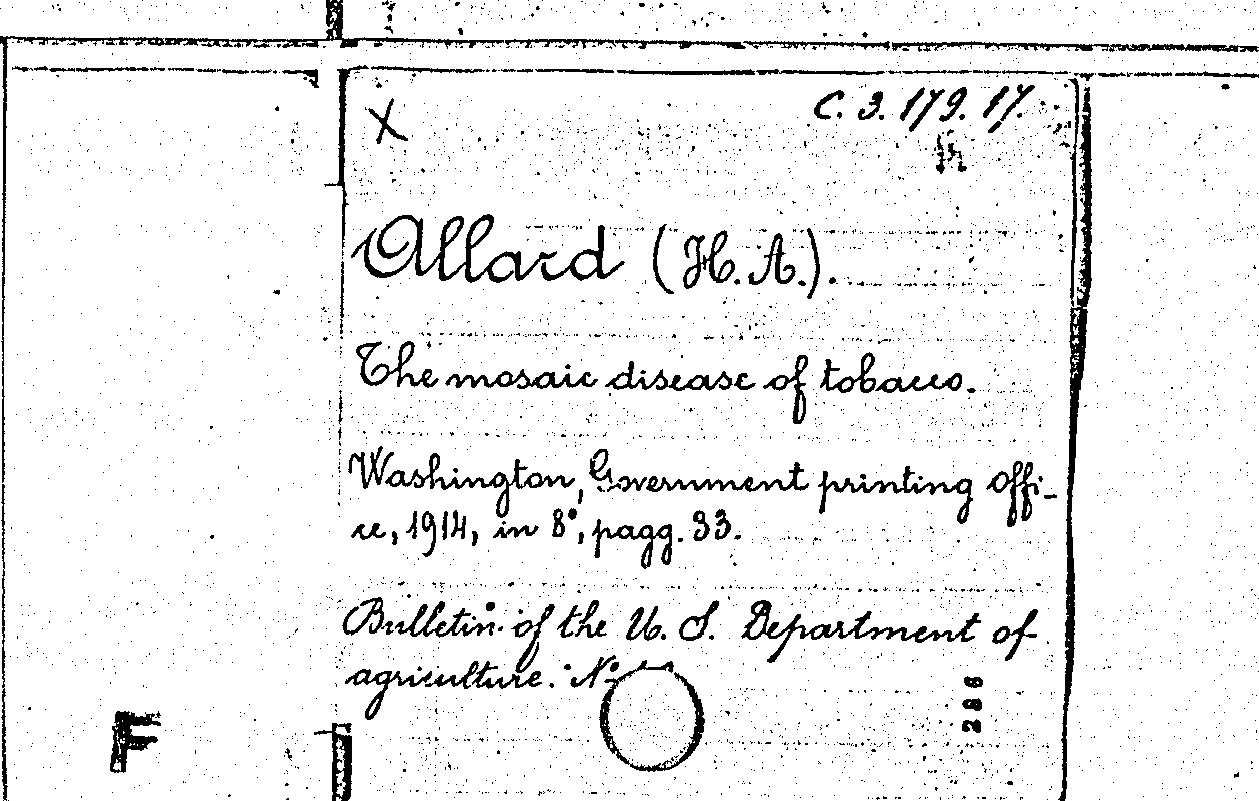 X
C. 3. 179. 17.
Allard (H. A.).
The mosaic disease of tobacco.
Washington, Government printing offi-
ce, 1914, in 8°, pagg. 33.
Bulletin of the U. S. Department of
agriculture. N°
286
F